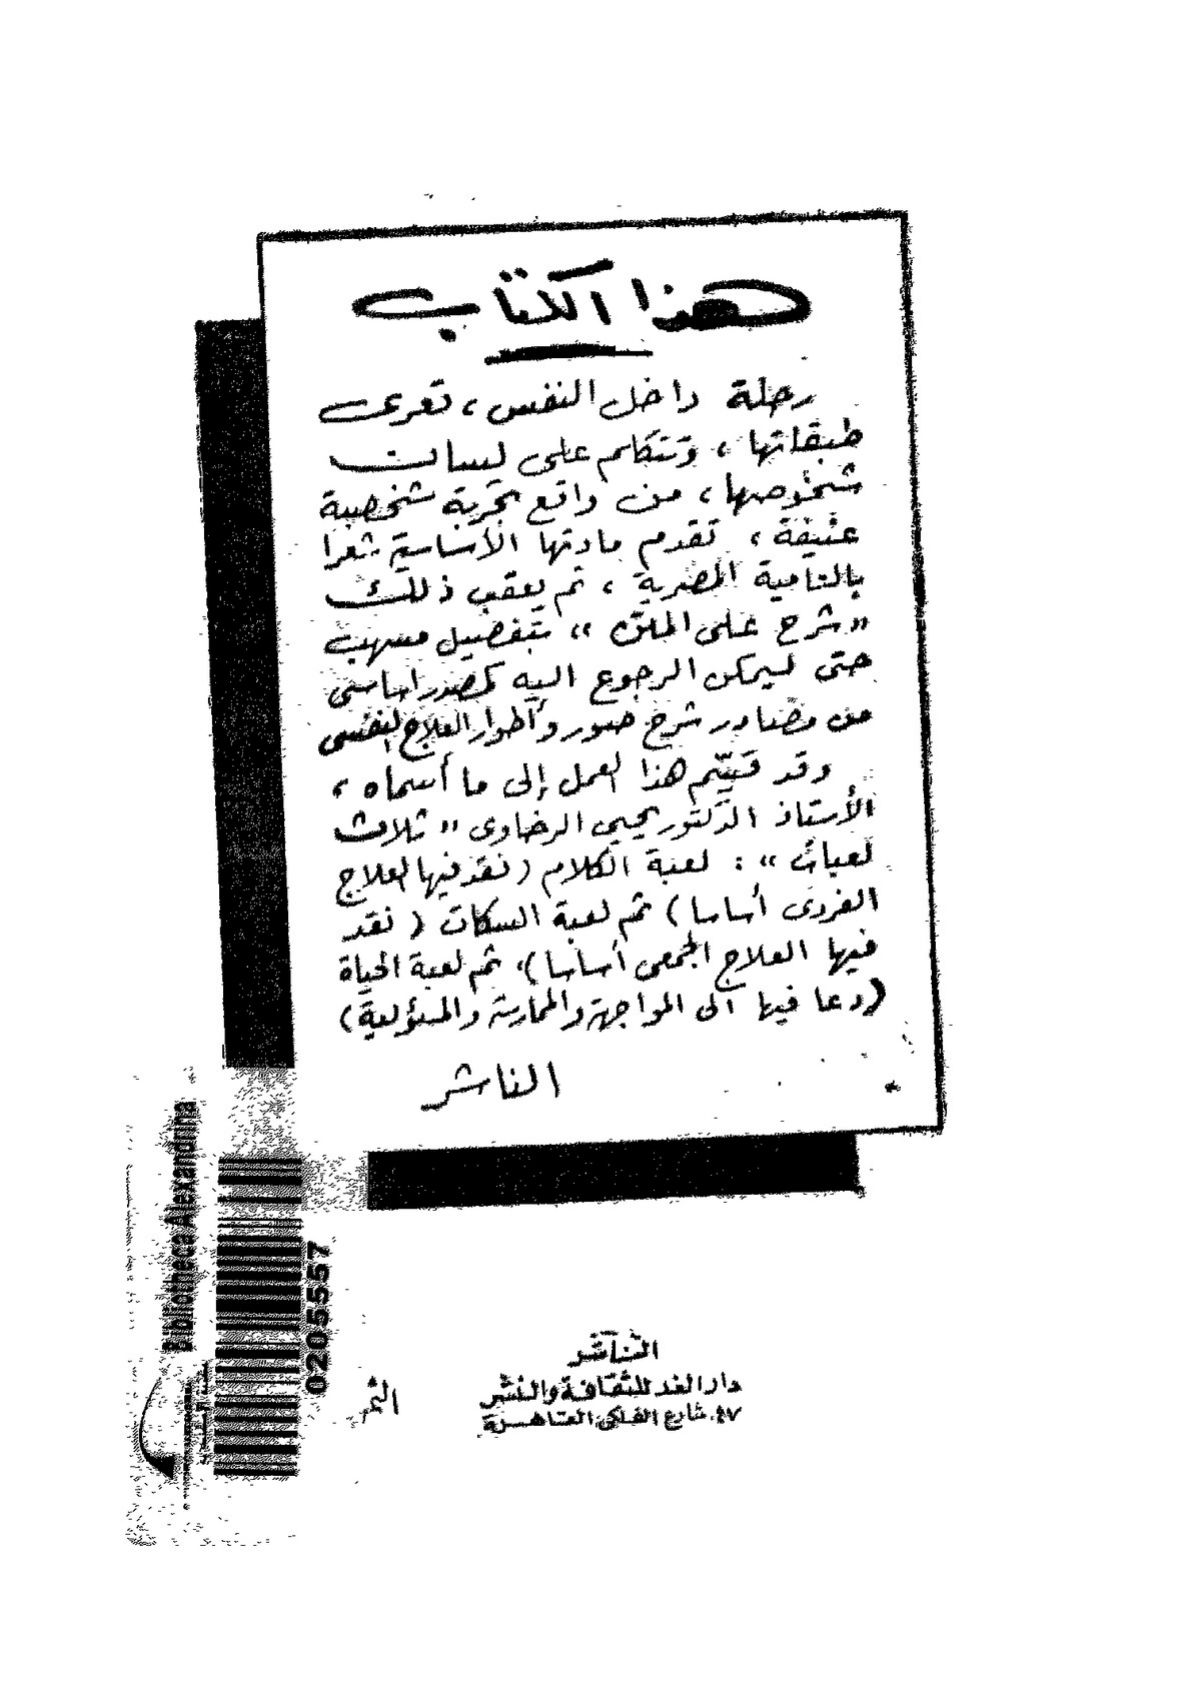 هذا الكتاب
رحلة داخل النفس، تعرى
طبقاتها، وتتكلم على لسان
شخوصها، من واقع تجربة شخصية
عنيفة، تقدم مادتها الأساسية شعرا
بالعامية المصرية، ثم يعقب ذلك
"شرح على المتن" بتفصيل مسهب
حتى ليمكن الرجوع اليه كمصدر اساسى
من مصادر شرح صور وأطوار العلاج النفسى
وقد قسّم هذا العمل إلى ما أسماه،
الأستاذ الدكتور يحيى الرخاوى "ثلاث
لعبات": لعبة الكلام (نقد فيها العلاج
الفردى أساسا) ثم لعبة السكات (نقد
فيها العلاج الجمعى أساسا)، ثم لعبة الحياة
(دعا فيها الى المواجهة والممارسة والمسئولية)
الناشر
Bibliotheca Alexandrina
0205557
الناشر
دار الغد للثقافة والنشر
٤٧ شارع الفلكى القاهرة